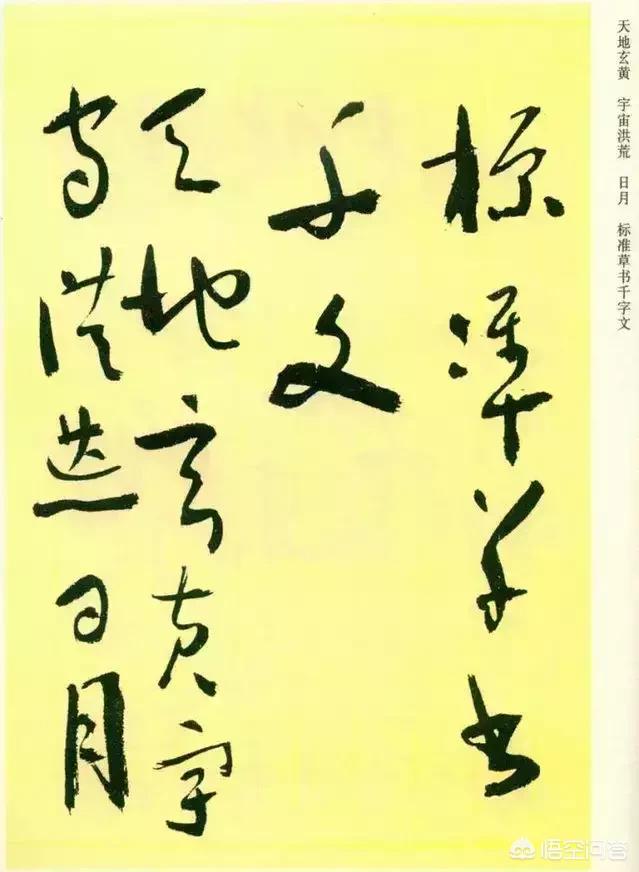 天地玄黄 宇宙洪荒 日月 标准草书千字文
標準草書
千文
天地玄黄宇
宙洪荒日月
悟空问答